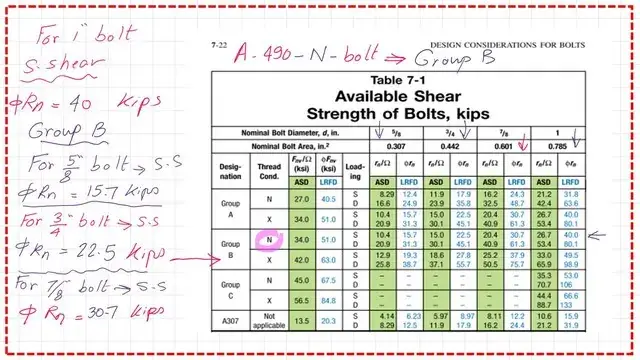 For 1" bolt
S. shear
ϕRn = 40 kips
Group B
For 5/8" bolt → S.S
ϕRn = 15.7 kips
For 3/4" bolt → S.S
ϕRn = 22.5 kips
For 7/8 bolt → S.S
ϕ Rn = 30.7 kips
7-22 DESIGN CONSIDERATIONS FOR BOLTS
A-490-N-bolt ⇒ Group B
Table 7-1
Available Shear
Strength of Bolts, kips
Nominal Bolt Diameter, d, in. 5/8 3/4 7/8 1
Nominal Bolt Area, in.² 0.307 0.442 0.601 0.785
Desig-nation Thread Cond. Fnv/Ω (ksi) ϕFnv (ksi) Load-ing rn/Ω ϕrn rn/Ω ϕrn rn/Ω ϕrn rn/Ω ϕrn
ASD LRFD ASD LRFD ASD LRFD ASD LRFD ASD LRFD
Group A N 27.0 40.5 S 8.29 12.4 11.9 17.9 16.2 24.3 21.2 31.8
D 16.6 24.9 23.9 35.8 32.5 48.7 42.4 63.6
X 34.0 51.0 S 10.4 15.7 15.0 22.5 20.4 30.7 26.7 40.0
D 20.9 31.3 30.1 45.1 40.9 61.3 53.4 80.1
Group B N 34.0 51.0 S 10.4 15.7 15.0 22.5 20.4 30.7 26.7 40.0
D 20.9 31.3 30.1 45.1 40.9 61.3 53.4 80.1
X 42.0 63.0 S 12.9 19.3 18.6 27.8 25.2 37.9 33.0 49.5
D 25.8 38.7 37.1 55.7 50.5 75.7 65.9 98.9
Group C N 45.0 67.5 S – – – – – – 35.3 53.0
D – – – – – – 70.7 106
X 56.5 84.8 S – – – – – – 44.4 66.6
D – – – – – – 88.7 133
A307 Not applicable 13.5 20.3 S 4.14 6.23 5.97 8.97 8.11 12.2 10.6 15.9
D 8.29 12.5 11.9 17.9 16.2 24.4 21.2 31.9